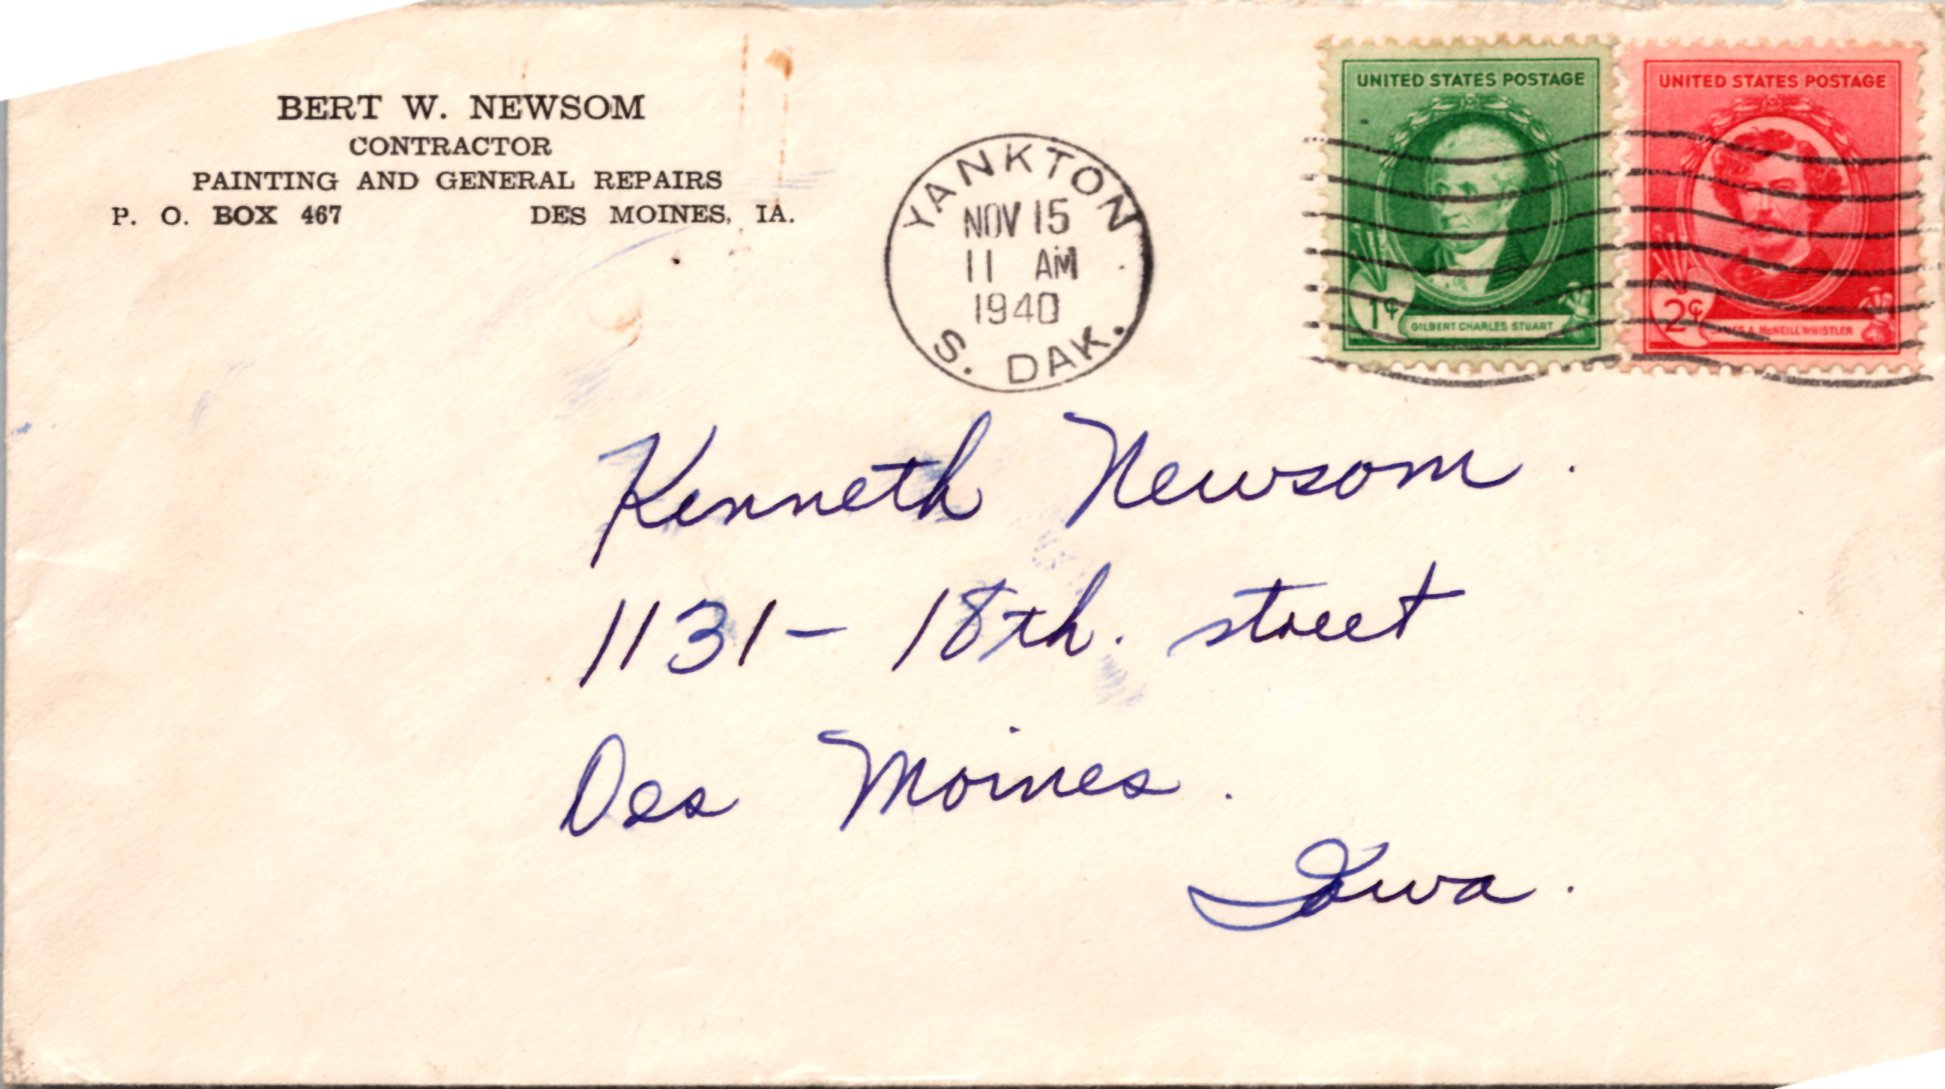 BERT W. NEWSOM
CONTRACTOR
PAINTING AND GENERAL REPAIRS
P. O. BOX 467 DES MOINES, IA.
YANKTON
NOV 15
11 AM
1940
S. DAK.
UNITED STATES POSTAGE
1¢
GILBERT CHARLES STUART
UNITED STATES POSTAGE
2¢
JAMES A. McNEILL WHISTLER
Kenneth Newsom.
1131- 18th. street
Des Moines.
Iowa.